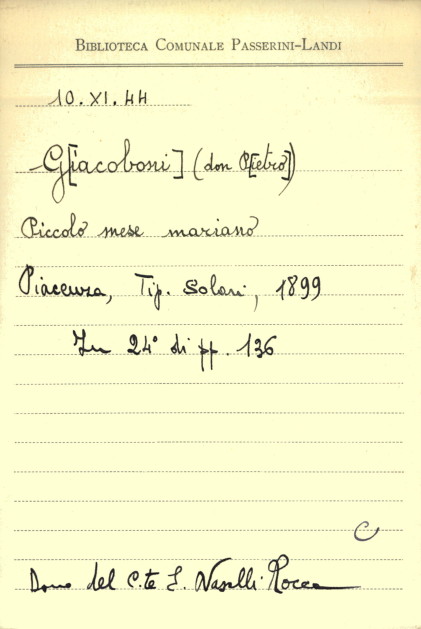 BIBLIOTECA COMUNALE PASSERINI-LANDI
10.XI.44
G[iacoboni] (don P[ietro])
Piccolo mese mariano
Piacenza, Tip. Solari, 1899
In 24° di pp. 136
C
Dono del C.te F. Nasalli Rocca